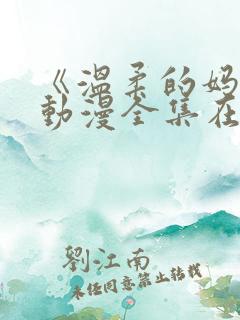 《温柔的妈
動漫全集在
劉江南
未经同意禁止转载